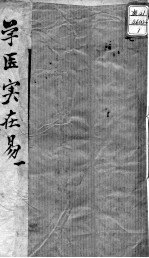 学医实在易一